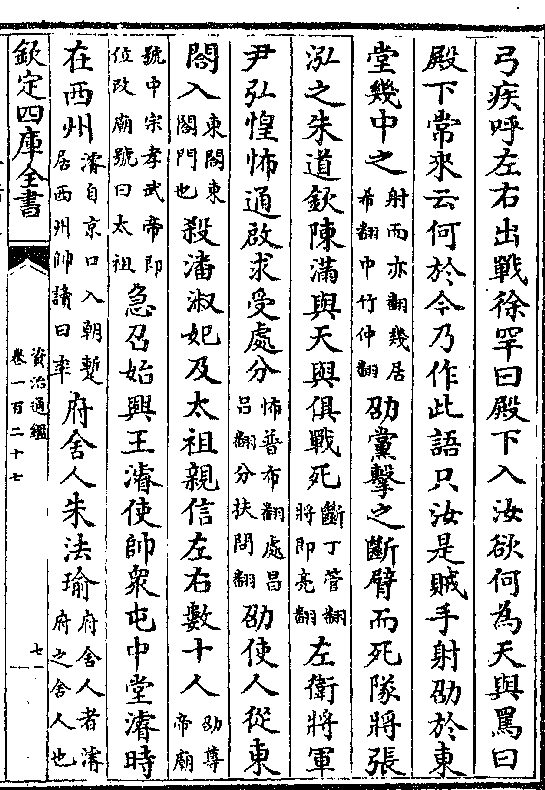 弓疾呼左右出戰徐罕曰殿下入汝欲何為天與罵曰
殿下常來云何於今乃作此語只汝是賊手射劭於東
堂幾中之
射而亦翻幾居
希翻中竹仲翻
劭黨擊之斷臂而死隊將張
泓之朱道欽陳滿與天與俱戰死
斷丁管翻
將即亮翻
左衛將軍
尹弘惶怖通啟求受處分
怖普布翻處昌
吕翻分扶問翻
劭使人從東
閤入
東閤東
閤門也
殺潘淑妃及太祖親信左右數十人
劭尊
帝廟
號中宗孝武帝即
位改廟號曰太祖
急召始興王濬使帥衆屯中堂濬時
在西州
濬自京口入朝暫
居西州帥讀曰率
府舍人朱法瑜
府舍人者濬
府之舍人也
欽定四庫全書
資治通鑑
卷一百二十七
七